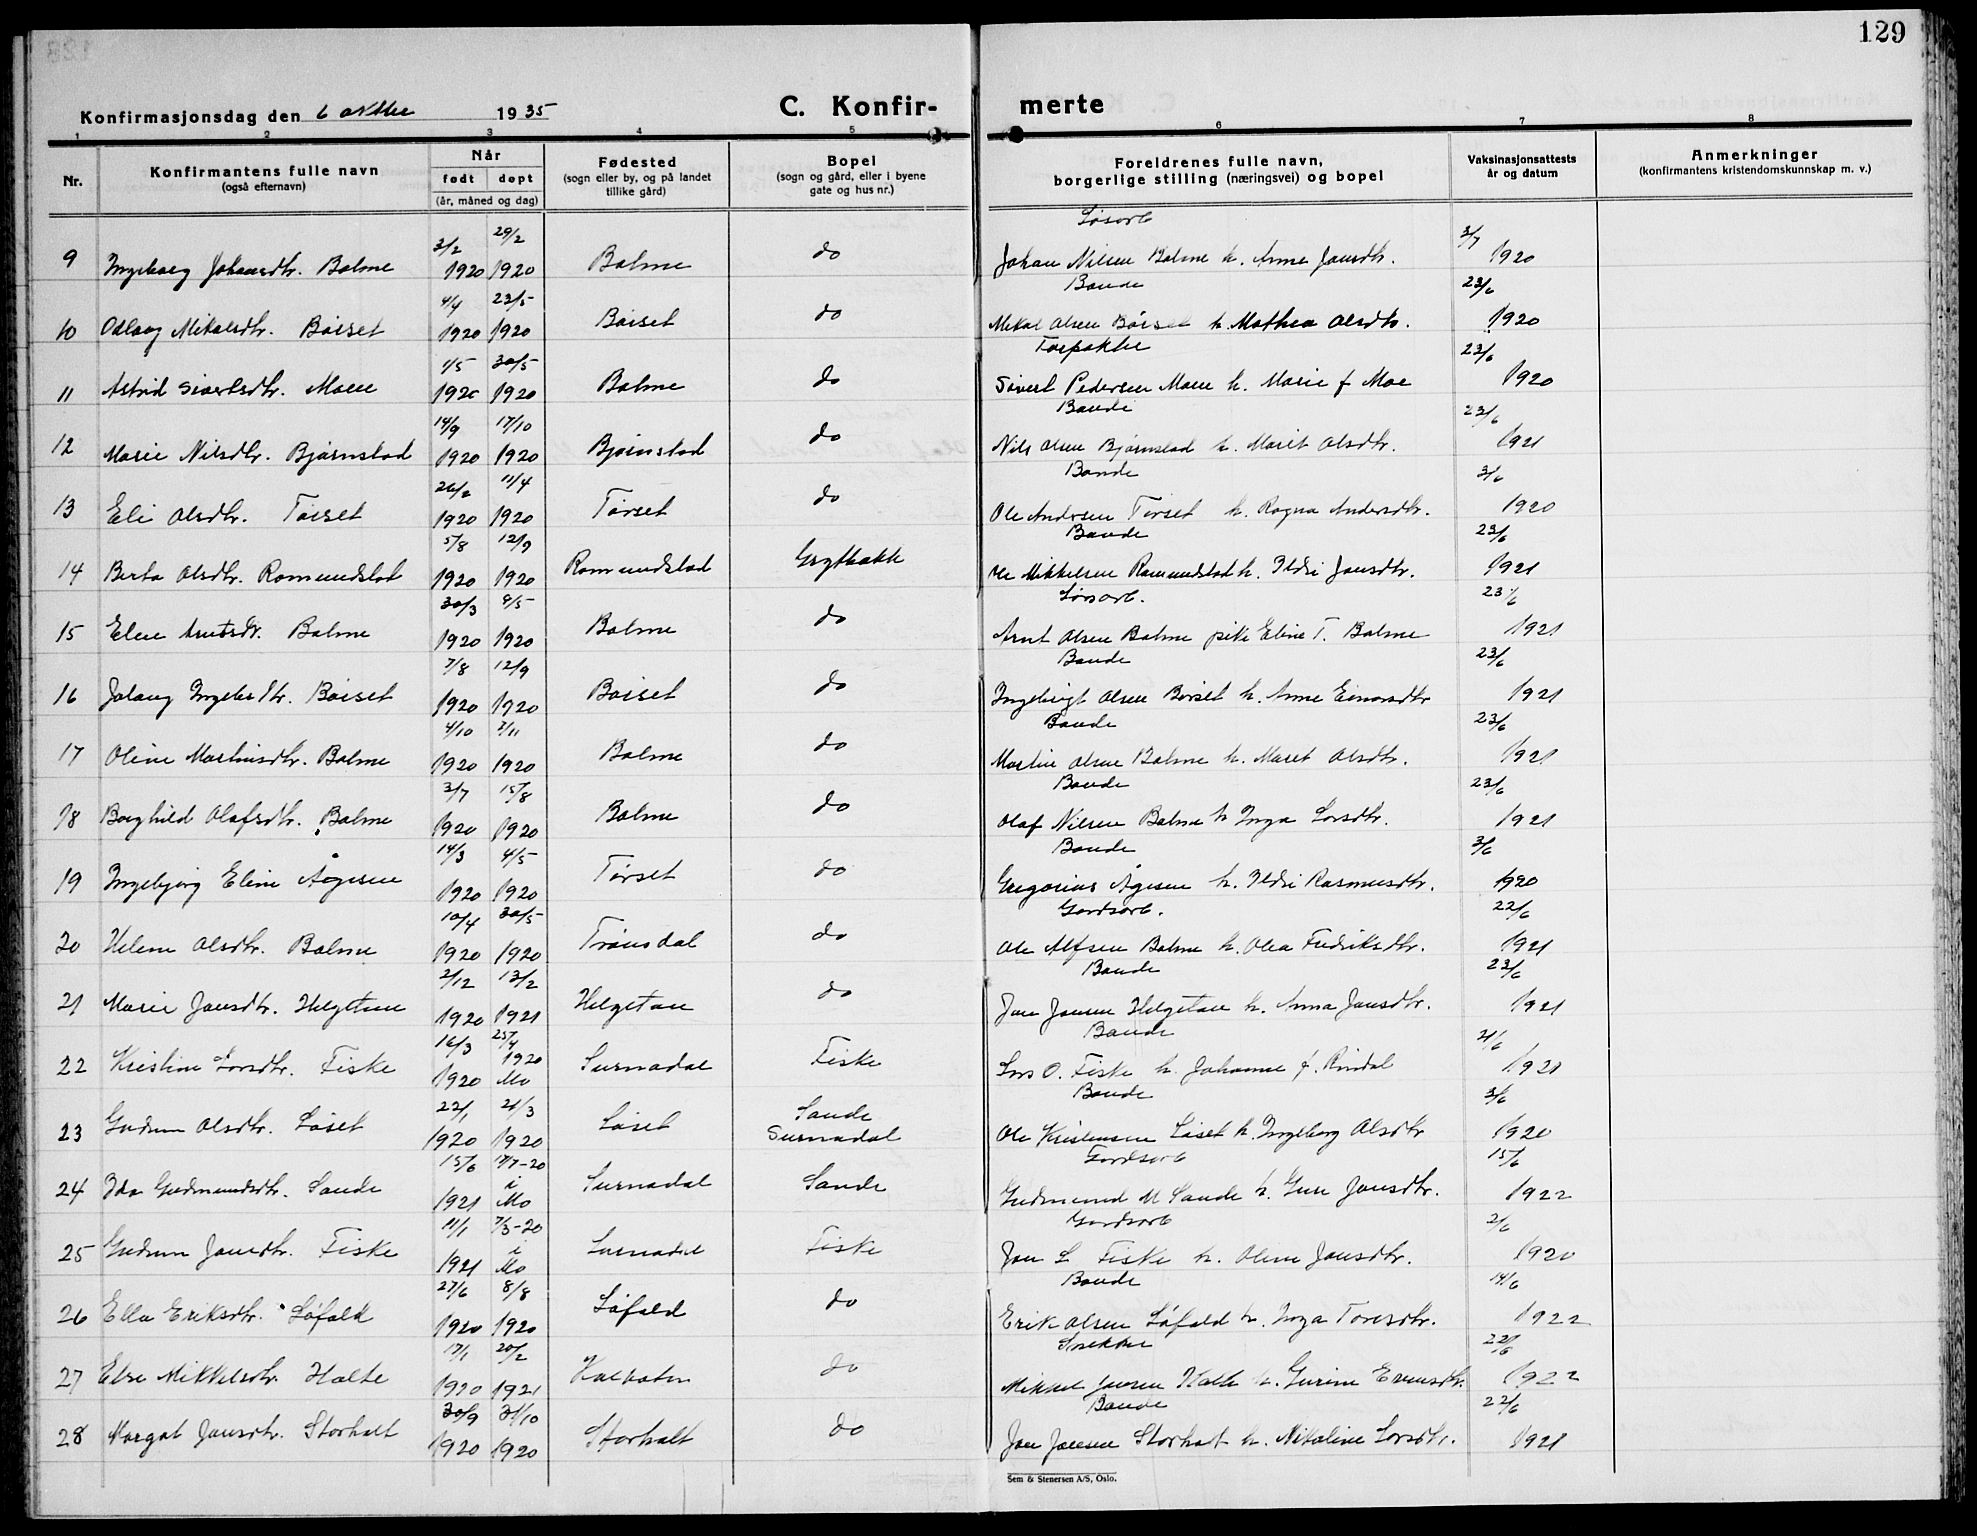 129
Konfirmasjonsdag den 6 oktbr 1935 C. Konfirmerte
1 2 3 4 5 6 7 8
Nr. Konfirmantens fulle navn (også efternavn) Når født døpt (år, måned og dag) Fødested (sogn eller by, og på landet tillike gård) Bopel (sogn og gård, eller i byene gate og hus nr.) Foreldrenes fulle navn, borgerlige stilling (næringsvei) og bopel Vaksinasjonsattests år og datum Anmerkninger (konfirmantens kristendomskunnskap m. v.)
3/2 29/2 3/7
9 Ingeborg Johansdtr. Bolme 1920 1920 Bolme do Johan Nilsen Bolme h. Anne Jonsdtr. 1920
4/4 23/5 Bonde 23/6
10 Oslaug Mikalsdtr. Börset 1920 1920 Börset do Mikal Olsen Börset h. Mathea Olsdtr. 1920
1/5 30/5 Forpakter 23/6
11 Astrid Sivertsdtr. Moen 1920 1920 Bolme do Sivert Pedersen Moen h. Marie f Moe 1920
14/9 17/10 Bonde 23/6
12 Marie Nilsdtr. Bjørnstad 1920 1920 Bjørnstad do Nils Olsen Bjørnstad h. Marit Olsdtr. 1921
26/2 11/4 Bonde 3/6
13 Eli Olsdtr. Tørset 1920 1920 Tørset do Ole Andersen Tørset h. Ragna Andersdtr. 1920
5/8 12/9 Bonde 23/6
14 Berta Olsdtr. Romundstad 1920 1920 Romundstad Grytbakk Ole Mikkelsen Romundstad h. Ildri Jonsdtr. 1921
30/3 9/5 23/6
15 Elen Arntsdtr. Bolme 1920 1920 Bolme do Arnt Olsen Bolme pike Eline T. Bolme 1921
7/8 12/9 Bonde 23/6
16 Jolaug Ingebr.dtr. Börset 1920 1920 Börset do Ingebrigt Olsen Börset h. Anne Einarsdtr 1921
4/10 7/11 Bonde 23/6
17 Oline Martinsdtr. Bolme 1920 1920 Bolme do Martin Olsen Bolme h. Maret Olsdtr. 1921
3/7 15/8 Bonde 23/6
18 Borghild Olafsdtr. Bolme 1920 1920 Bolme do Olaf Nilsen Bolme h Inga Larsdtr. 1921
14/3 4/5 Bonde 3/6
19 Ingebjørg Eline Ågesen 1920 1920 Tørset do Gregorius Ågesen h. Ildri Rasmusdtr. 1920
10/4 30/5 Gardsarb. 22/6
20 Helene Olsdtr. Bolme 1920 1920 Trønsdal do Ole Alfsen Bolme h. Olea Fredriksdtr. 1921
2/12 13/2 Bonde 23/6
21 Marie Jonsdtr. Helgetun 1920 1921 Helgetun do Jon Jonsen Helgetun h. Anna Jonsdtr. 1921
16/3 25/4 1920 Bonde 21/6
22 Kristine Larsdtr. Fiske 1920 Mo Surnadal Fiske Lars O. Fiske h. Johanne f. Rindal 1921
22/1 21/3 Bonde 3/6
23 Gudrun Olsdtr. Løset 1920 1920 Løset Sande Surnadal Ole Kristensen Løset h. Ingeborg Olsdtr 1920
15/6 17/7-20 Gardsarb 15/6
24 Ida Gudmundsdtr. Sande 1921 i Mo Surnadal Sande Gudmund M Sande h. Guru Jonsdtr. 1922
11/1 7/3-20 Gardsarb 2/6
25 Gudrun Jonsdtr. Fiske 1921 i Mo Surnadal Fiske Jon L Fiske h. Oline Jonsdtr. 1920
27/6 8/8 Bonde 14/6
26 Ella Eriksdtr. Løfald 1920 1920 Løfald do Erik Olsen Løfald h. Inga Toresdtr. 1922
17/1 20/2 Snekker 22/6
27 Else Mikkelsdtr. Halte 1920 1921 do Mikkel Jonsen Halte h. Gurine Evensdtr. 1922
30/9 31/10 Bonde 22/6
28 Margot Jonsdtr. Storholt 1920 1920 Storholt do Jon Jonsen Storholt h. Nikoline Larsdtr. 1921
Sem & Stenersen A/S, Oslo.